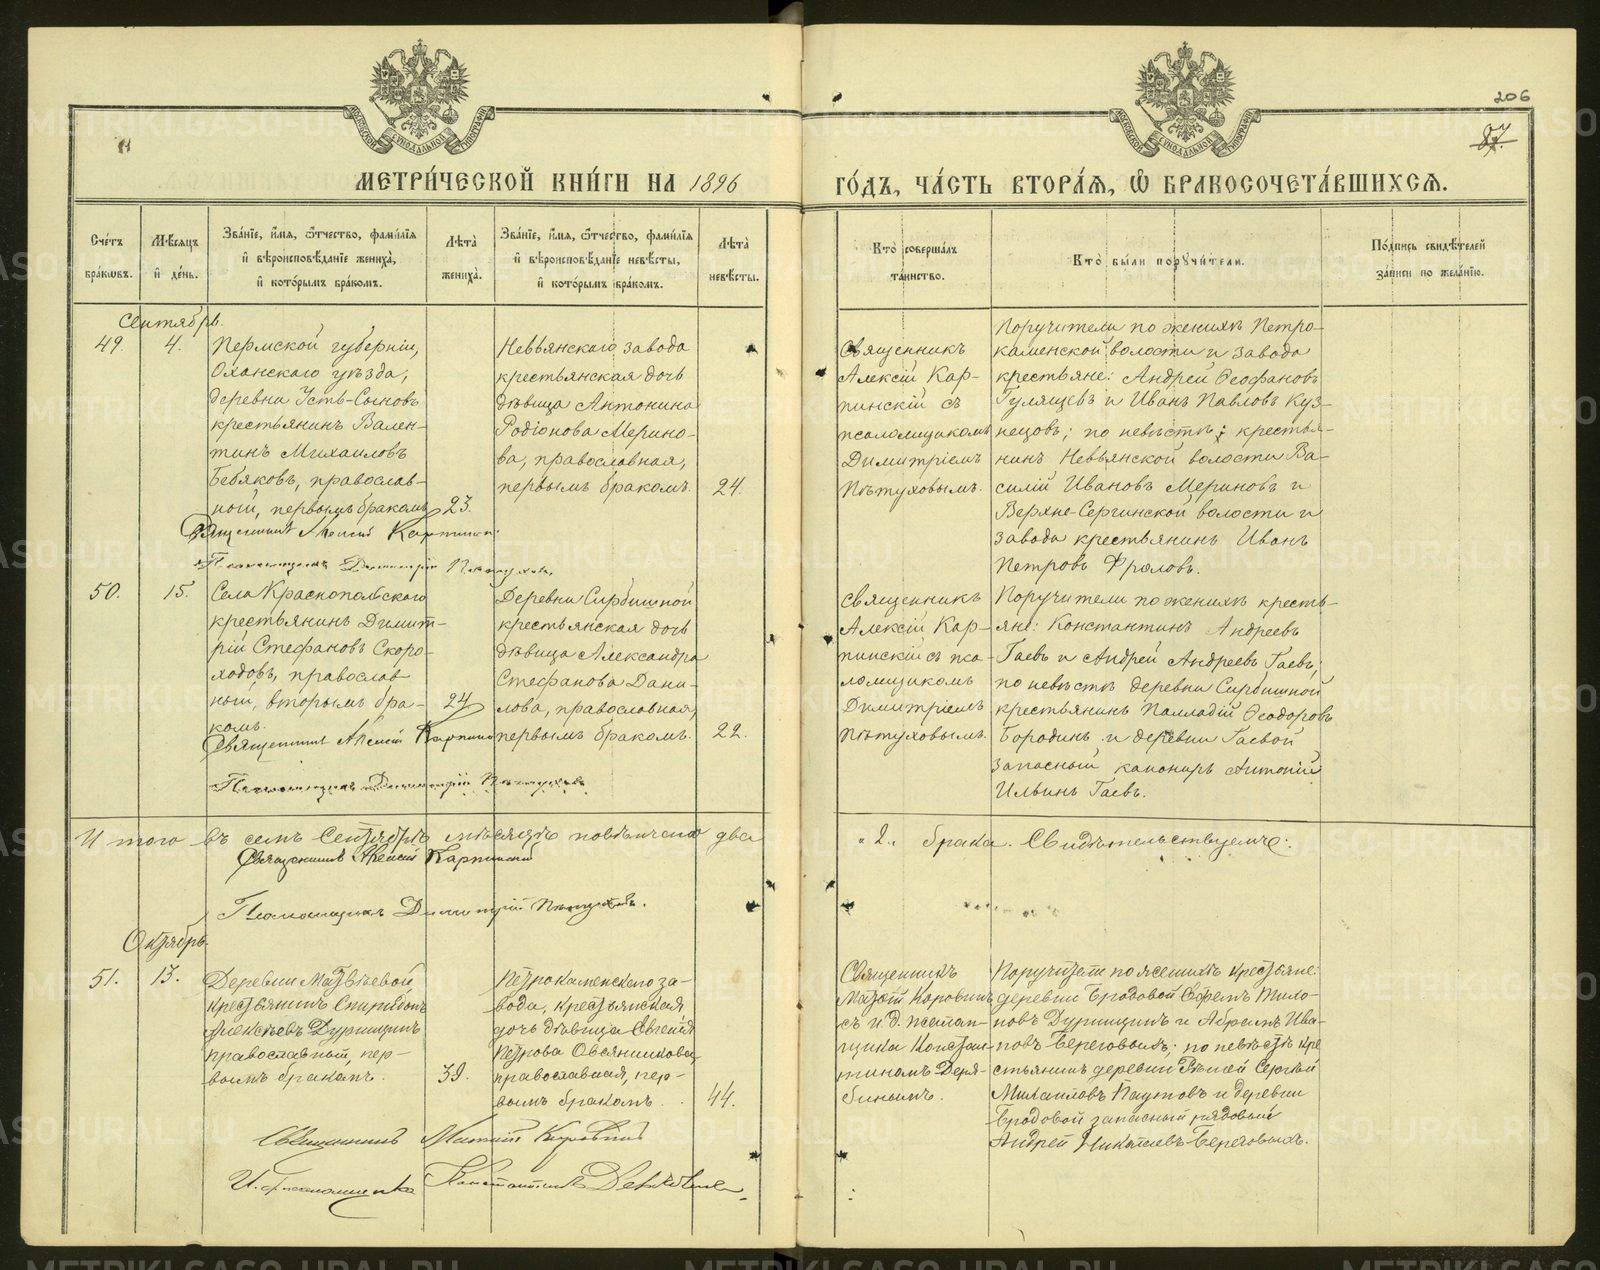 206
87.
МЕТРИ́ЧЕСКОЙ КНИ́ГИ НА 1896
ГО́ДЪ, ЧА́СТЬ ВТОРА́Я, Ѡ БРАКОСОЧЕТА́ВШИХСЯ.
Сче́тъ бра́кѡвъ.
Мѣ́сяцъ и҆ де́нь.
Зва́нїе, и҆́мя, ѻ҆́тчество, фами́лїя
и҆ вѣроисповѣ́данїе жениха̀,
и҆ кото́рымъ бра́комъ.
Лѣта̀ жениха̀.
Зва́нїе, и҆́мя, ѻ҆́тчество, фами́лїя
и҆ вѣроисповѣ́данїе невѣ́сты,
и҆ кото́рымъ бра́комъ.
Лѣта̀ невѣ́сты.
Кто̀ соверша́лъ
та́инство.
Кто̀ бы́ли порꙋчи́тели.
По́дпись свидѣ́телей
за́писи по жела́нїю.
Сентябрь.
49. 4.
Пермской губерніи,
Оханскаго уѣзда,
деревни Усть-Сыновъ
крестьянинъ Вален-
тинъ Михаиловъ
Бебяковъ, православ-
ный, первымъ бракомъ
23.
Невьянскаго завода
крестьянская дочь
дѣвица Антонина
Родіонова Мерино-
ва, православная,
первымъ бракомъ.
24.
Священникъ
Алексій Кар-
пинскій съ
псаломщикомъ
Димитріемъ
Пѣтуховымъ.
Поручители по женихѣ Петро-
каменской волости и завода
крестьяне: Андрей Ѳеофановъ
Гулящевъ и Иванъ Павловъ Куз-
нецовъ; по невѣстѣ: крестья-
нинъ Невьянской волости Ва-
силій Ивановъ Мериновъ и
Верхне-Сергинской волости и
завода крестьянинъ Иванъ
Петровъ Фроловъ.
Священникъ Алексій Карпинскій
Псаломщикъ Димитрій Пѣтуховъ.
50. 15.
Села Краснопольскаго
крестьянинъ Димит-
рій Стефановъ Скоро-
ходовъ, православ-
ный, вторымъ бра-
комъ.
24
Деревни Сирбишной
крестьянская дочь
дѣвица Александра
Стефанова Дани-
лова, православная,
первымъ бракомъ.
22.
Священникъ
Алексій Кар-
пинскій съ пса-
ломщикомъ
Димитріемъ
Пѣтуховымъ.
Поручители по женихѣ кресть-
яне: Константинъ Андреевъ
Гаевъ и Андрей Андреевъ Гаевъ;
по невѣстѣ деревни Сирбишной
крестьянинъ Палладій Ѳеодоровъ
Бородинъ и деревни Гаевой
запасный канониръ Антоній
Ильинъ Гаевъ.
Священникъ Алексій Карпинскій
Псаломщикъ Димитрій Пѣтуховъ
Итого въ семъ Сентябрѣ мѣсяцѣ повѣнчано два
"2" брака. Свидѣтельствуемъ:
Священникъ Алексій Карпинскій
Псаломщикъ Димитрій Пѣтуховъ.
Октябрь.
51. 13.
Деревни Матвѣевой
крестьянинъ Спиридонъ
Алексѣевъ Дурницынъ
православный, пер-
вымъ бракомъ.
39.
Петрокаменскаго за-
вода, крестьянская
дочь дѣвица Евгенія
Петрова Овсянникова,
православная, пер-
вымъ бракомъ.
44.
Священникъ
Матѳій Коровинъ
съ и. д. псалом-
щика Констан-
тиномъ Деря-
бинымъ.
Поручители по женихѣ крестьяне:
деревни Бродовой Ефимъ Тило-
новъ Дурницынъ и Абрамъ Ива-
новъ Береговыхъ; по невѣстѣ кре
стьянинъ деревни Рѣшей Сергѣй
Михаиловъ Паутовъ и деревни
Бродовой запасный рядовый
Андрей Николаевъ Береговыхъ.
Священникъ Матѳій Коровинъ
И. д. псаломщика Константинъ Дерябинъ
METRIKI.GASO-URAL.RU